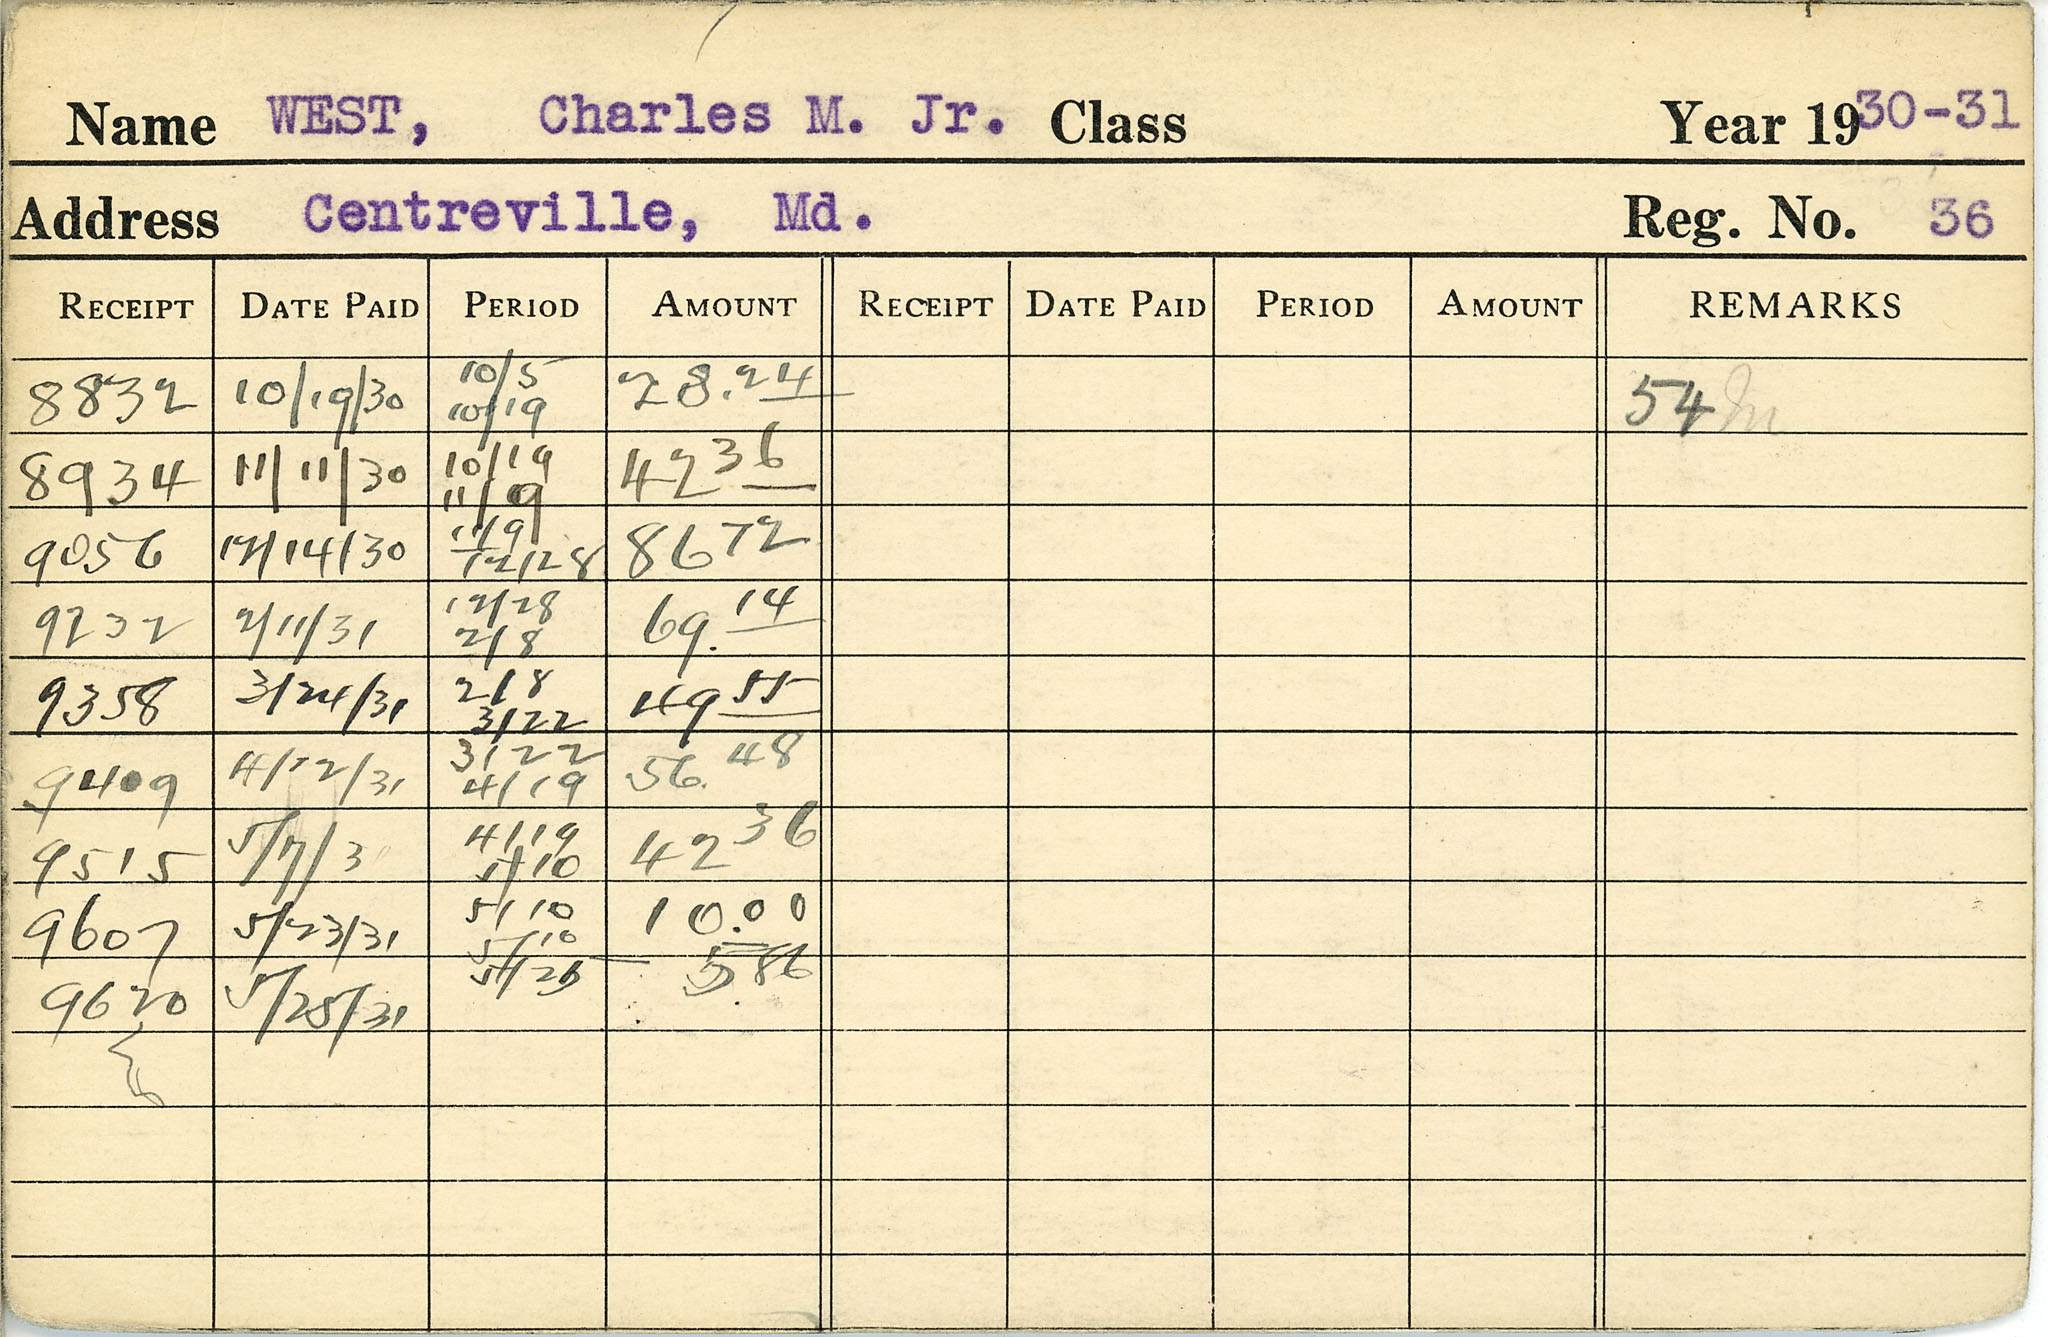 Name WEST, Charles M. Jr. Class Year 1930-31
Address Centreville, Md. Reg. No. 36
RECEIPT DATE PAID PERIOD AMOUNT RECEIPT DATE PAID PERIOD AMOUNT REMARKS
8832 10/19/30 10/5 10/19 28.24 54
8934 11/11/30 10/19 11/9 42 36
9056 12/14/30 11/9 12/28 86 72
9232 2/11/31 12/28 2/8 69.14
9358 3/24/31 2/8 3/22 49 55
9409 4/12/31 3/22 4/19 56.48
9515 5/7/3 4/19 5/10 42 36
9607 5/23/31 5/10 5/10 10.00
9620 5/25/31 5/26 5 86